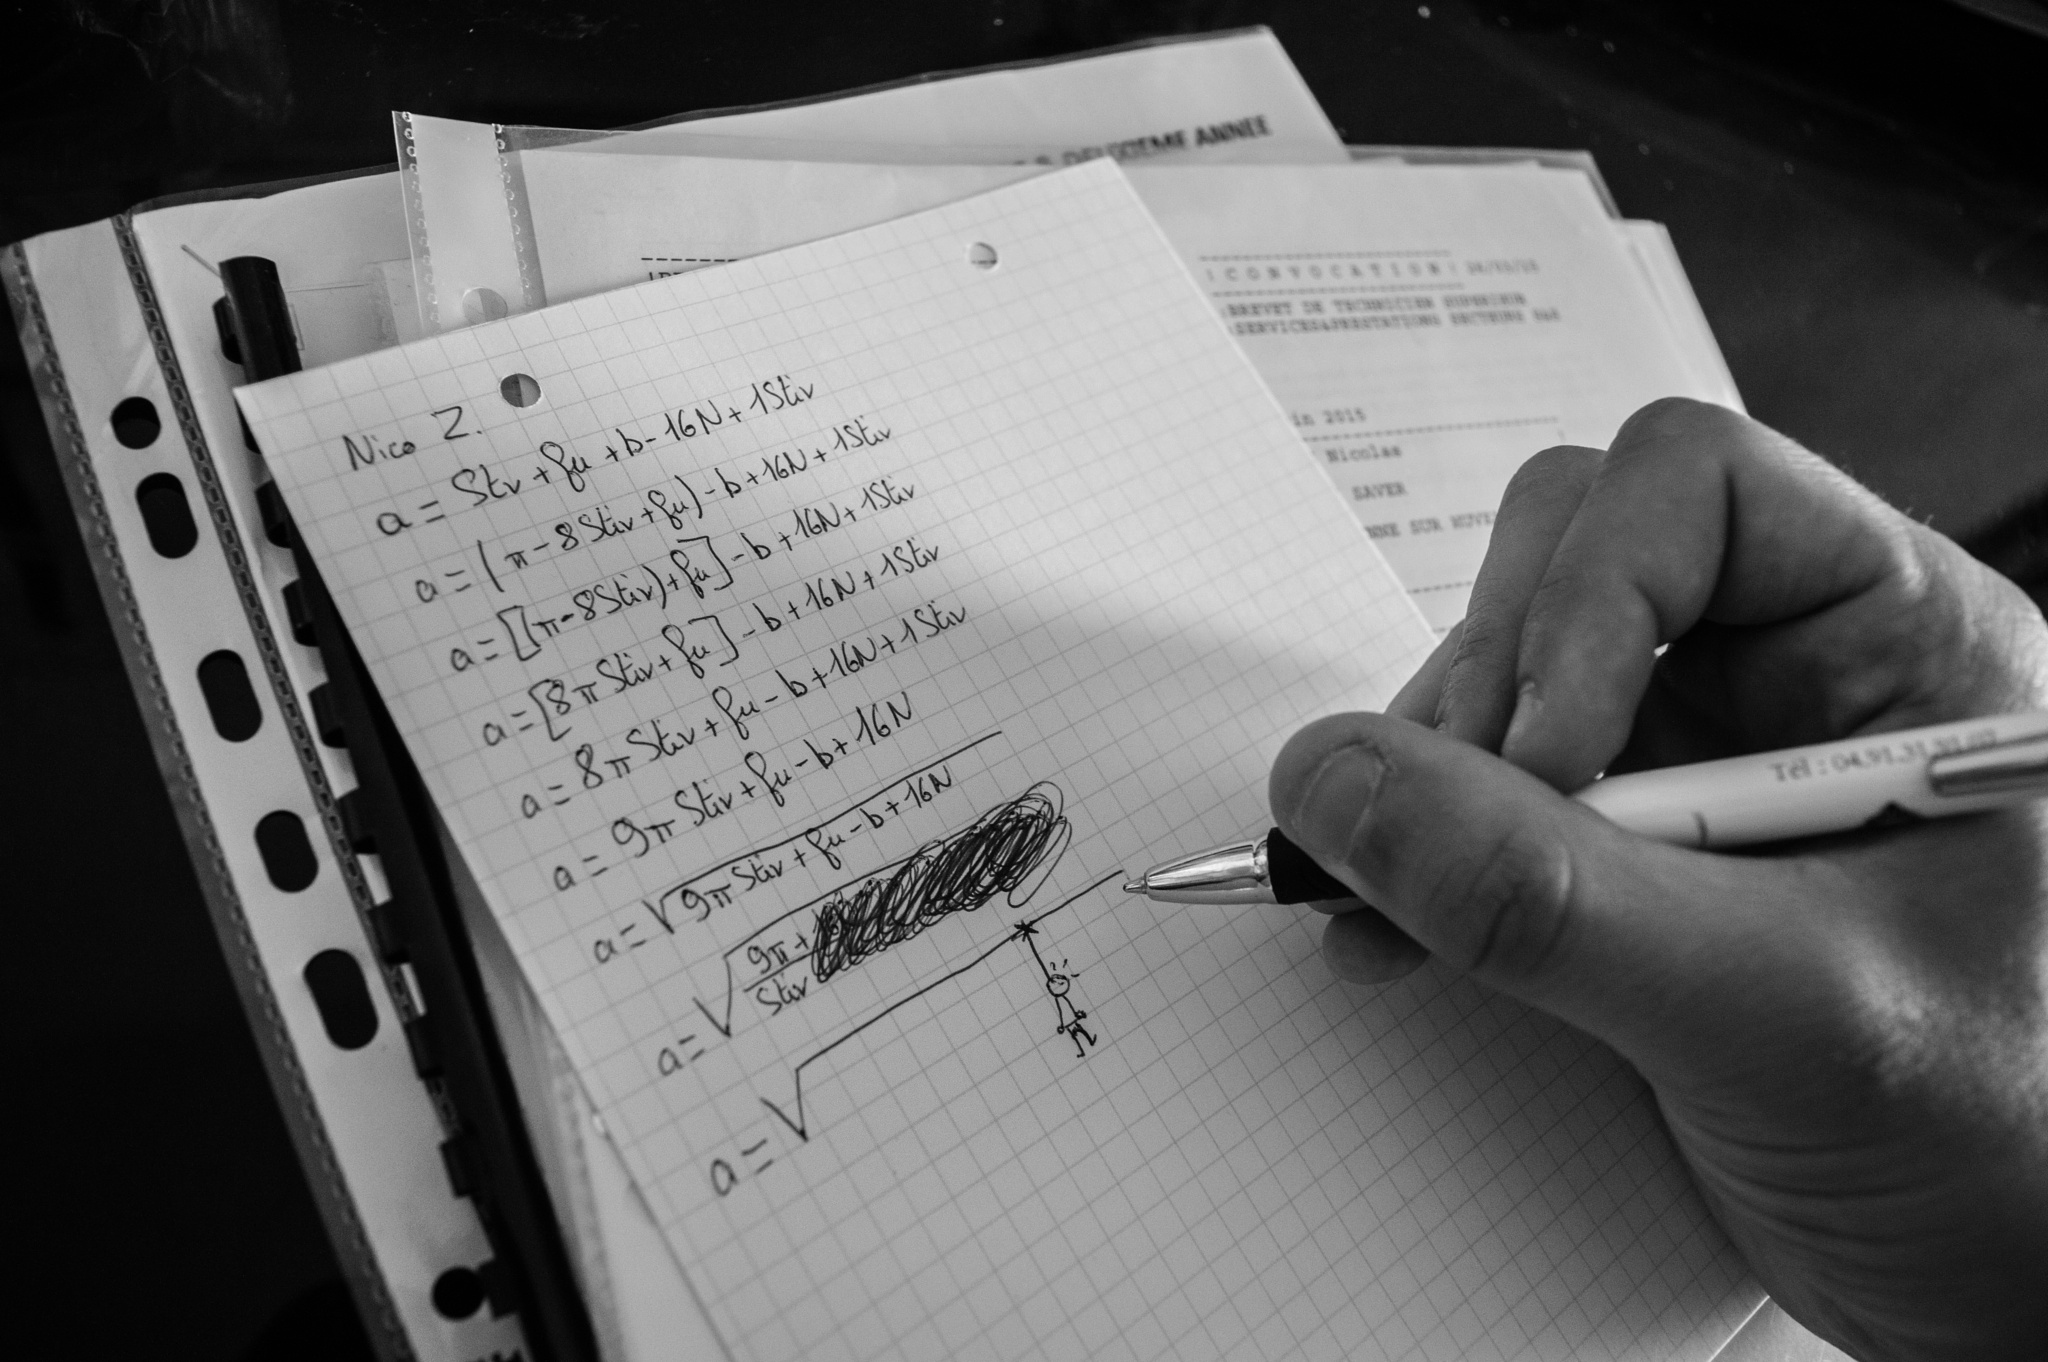 DEUXIEME ANNEE
CONVOCATION
BREVET DE TECHNICIEN SUPERIEUR
SERVICES&PRESTATIONS SECTEURS S&S
in 2015
Nicolas
SAVER
Nico Z.
a = Stiv + fu + b - 16N + 1Stiv
a = (π - 8Stiv + fu) - b + 16N + 1Stiv
a = [(π - 8Stiv) + fu] - b + 16N + 1Stiv
a = [8π Stiv + fu] - b + 16N + 1Stiv
a = 8π Stiv + fu - b + 16N + 1Stiv
a = 9π Stiv + fu - b + 16N
a = √9π Stiv + fu - b + 16N
a = √9π +
Stiv
a = √
Tél : 04.91.31.91.07